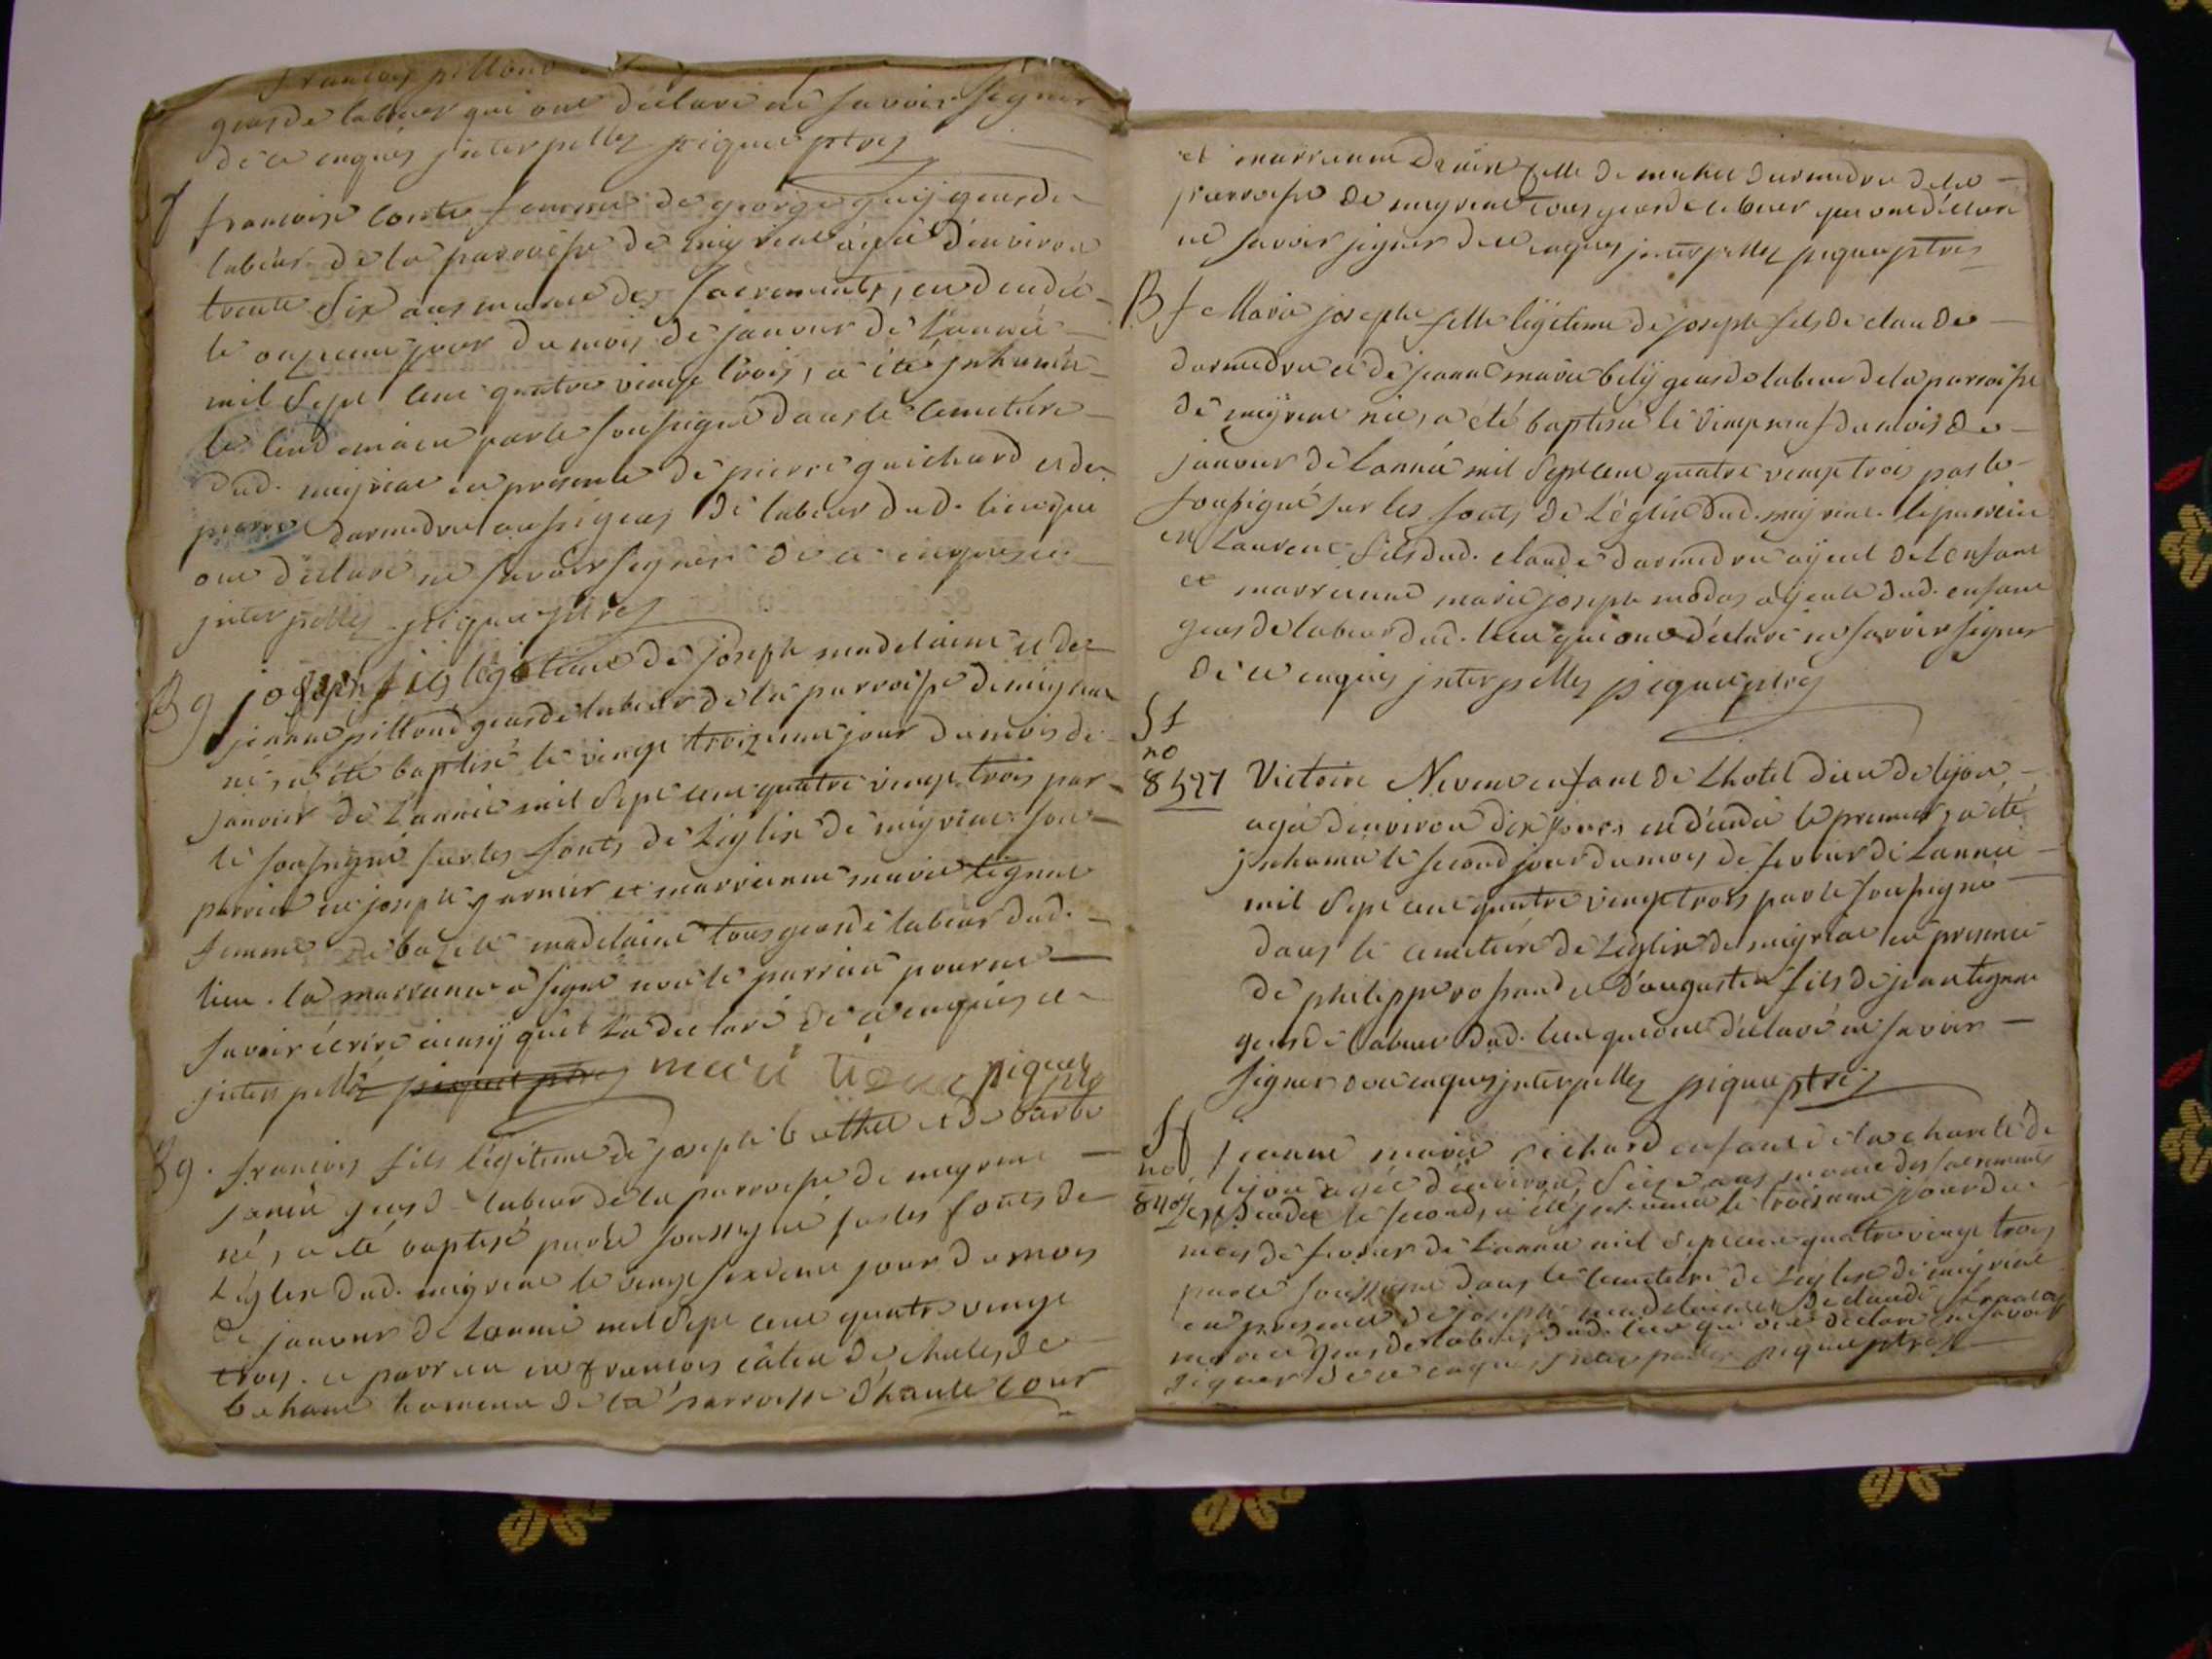 francois pillond
gens de labeur qui ont déclaré ne savoir signer
de ce enquis jnterpellez piquet ptre
f françoise comte femme de george guij gens de
labeur de la parroisse de meyriat agée d'environ
trente six ans munie des sacrements, est decedée
le onzieme jour du mois de janvier de l'année
mil sept cent quatre vingt trois, a été jnhumée
le lendemain par le soussigné dans le cemetiére
dud. meyriat en presence de pierre guichard et de
pierre darmedru aussi gens de labeur dud. lieu qui
ont déclaré ne savoir signer de ce enquis et
jnterpellez piquet ptre
B g joseph fils légitime de joseph madelaine et de
jeanne pillond gens de labeur de la parroisse de meyriat
né, a été baptisé le vingt troizieme jour du mois de
janvier de l'année mil sept cent quatre vingt trois par
le soussigné sur les fonts de l'église de meyriat. son
parrein est joseph garnier et marreinne marie tignat
femme de bazile madelaine tous gens de labeur dud.
lieu. la marreinne a signé non le parrein pour ne
savoir écrire ainsij qu'il l'a declaré de ce enquis et
jnterpellé piquet ptre marie piquet ptre
B g. francois fils légitime de joseph berthet et de barbe
janin gens de labeur de la parroisse de meyriat
né, a été baptisé par le soussigné sur les fonts de
l'église dud. meyriat le vingt sixieme jour du mois
de janvier de l'année mil sept cent quatre vingt
trois. le parrein est francois câtin de chales de
bohant hameau de la parroisse d'hautecour
et marreinne fille de michel darmedru de la
parroisse de meyriat tous gens de labeur qui ont déclaré
ne savoir signer de ce enquis jnterpellez piquet ptre
B f Marie josephe fille légitime de joseph fils de claude
darmedru et de jeanne marie belij gens de labeur de la parroisse
de meyriat née, a été baptisée le vingt neuf du mois de
janvier de l'année mil sept cent quatre vingt trois par le
soussigné sur les fonts de l'église dud. meyriat. le parrein
est laurent fils dud. claude darmedru aÿeul de l'enfant
et marreinne marie josephe modas aÿeule dud. enfant
gens de labeur dud. lieu qui ont déclaré ne savoir signer
de ce enquis jnterpellez piquet ptre
S f
no
8527 Victoire Neveu enfant de l'hotel dieu de lijon
agée d'environ dix jours est décedée le premier, a été
jnhumée le second jour du mois de fevrier de l'année
mil sept cent quatre vingt trois par le soussigné
dans le cemetiére de l'église de meyriat en presence
de philippe rossand et d'augustin fils de jean tignat
gens de labeur dud. lieu qui ont déclaré ne savoir
signer de ce enquis jnterpellez piquet ptre
S f
no
jeanne marie richard enfant de la charité de
lijon agée d'environ seize ans munie des sacrements
est decedée le second, a été jnhumée le troisieme jour du
mois de fevrier de l'année mil sept cent quatre vingt trois
par le soussigné dans le cemetiére de l'église de meyriat
en presence de joseph madelaine et de claude
gens de labeur dud. lieu qui ont déclaré ne savoir
signer de ce enquis jnterpellez piquet ptre